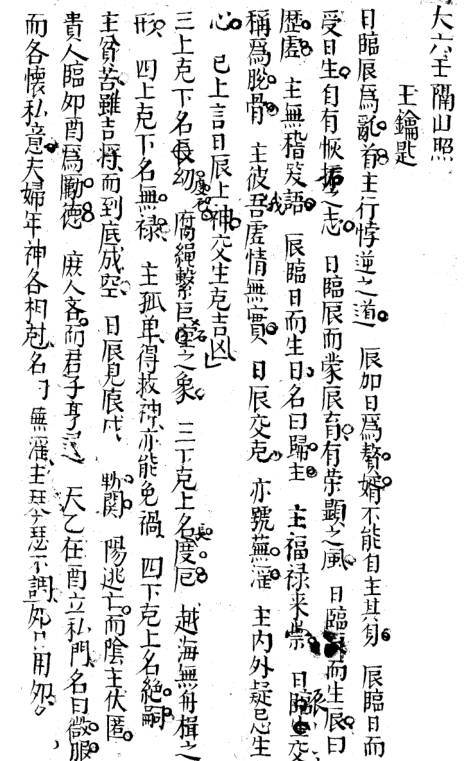 大六壬隔山照
玉鑰匙
日臨辰為亂首主行悖逆之道 辰加日為贅婿不能自主其身 辰臨日而
受日生自有恢振之志 日臨辰而蒙辰育有荣顯之風 日臨辰而生辰曰
歴虛 主無稽発語 辰臨日而生日名曰歸主 主福禄来崇 日辰交
稱為脫骨 主彼我吾虛情無實 日辰交克 亦號蕪淫 主內外疑忌生
心 已上言日辰上神交生克吉凶
三上克下名長幼 腐繩繫巨之象 三下克上名度厄 越海無舟楫之
形 四上克下名無禄 主孤单得救神亦能免禍 四下克上名絕嗣
主貧苦雖吉將而到底成空 日辰見辰戌 勑関 陽逃亡而陰主伏匿
貴人臨夘酉為勵德 庶人吝而君子亨 天乙在酉立私門名曰微服
而各懷私意夫婦年神各相尅名曰蕪淫主琴瑟不調